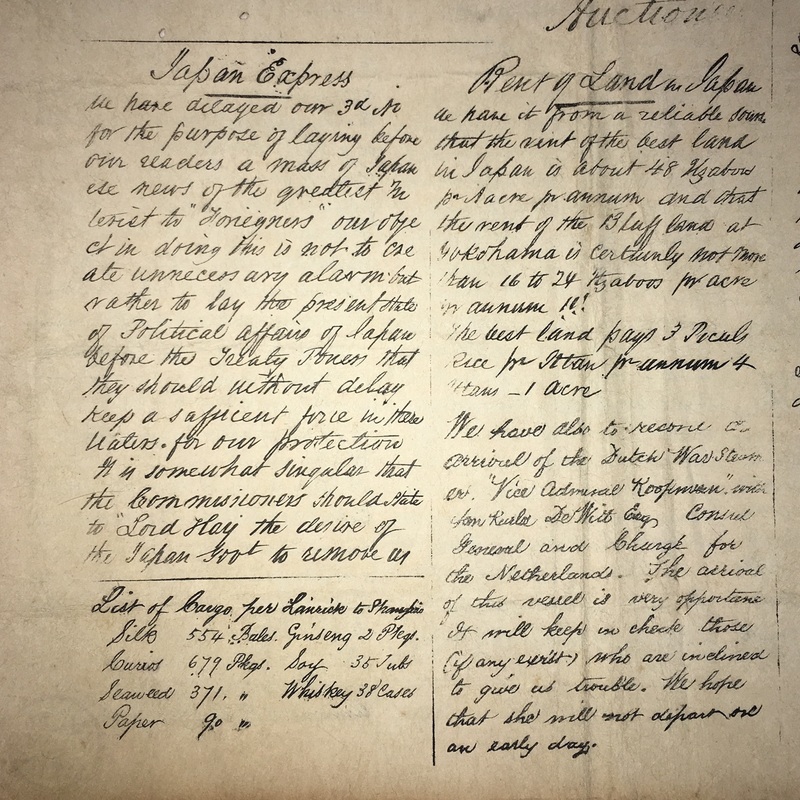 Auction
Japan Express
we have delayed our 3d No
for the purpose of laying before
our readers a mass of Japan
ese news of the greatest In
terist to "Foreigners" our obje
ct in doing this is not to cre
ate unnecessary alarm but
rather to lay the present state
of Political affairs of Japan
before the Treaty Powers that
they should without delay
keep a sufficent force in these
Waters. for our protection
It is somewhat singular that
the Commissioners should state
to "Lord Hay the desire of
the Japan Govt to remove us
List of Cargo, per Linrick to
Silk 554 Bales. Ginseng 2 Pkgs.
Curios 679 Pkgs. Soy 35 Tubs
Seaweed 371. " Whiskey 38 Cases
Paper 90 "
Rent of Land in Japan
we have it from a reliable source
that the rent of the best land
in Japan is about 48 Itzaboos
pr Acre pr annum and that
the rent of the Bluff land at
Yokohama is certainly not more
than 16 to 24 Itzaboos pr acre
pr annum !!!
The best land pays 3 Piculs
Rice pr Ittan pr annum 4
Ittans - 1 Acre
We have also to record
arrival of the Dutch War Steam
er. "Vice Admiral Koopman" with
De Wit Esq Consul
General and Charge for
the Netherlands. The arrival
of this vessel is very opportune
It will keep in check those
(if any exist) who are inclined
to give us trouble. We hope
that she will not depart
an early day.